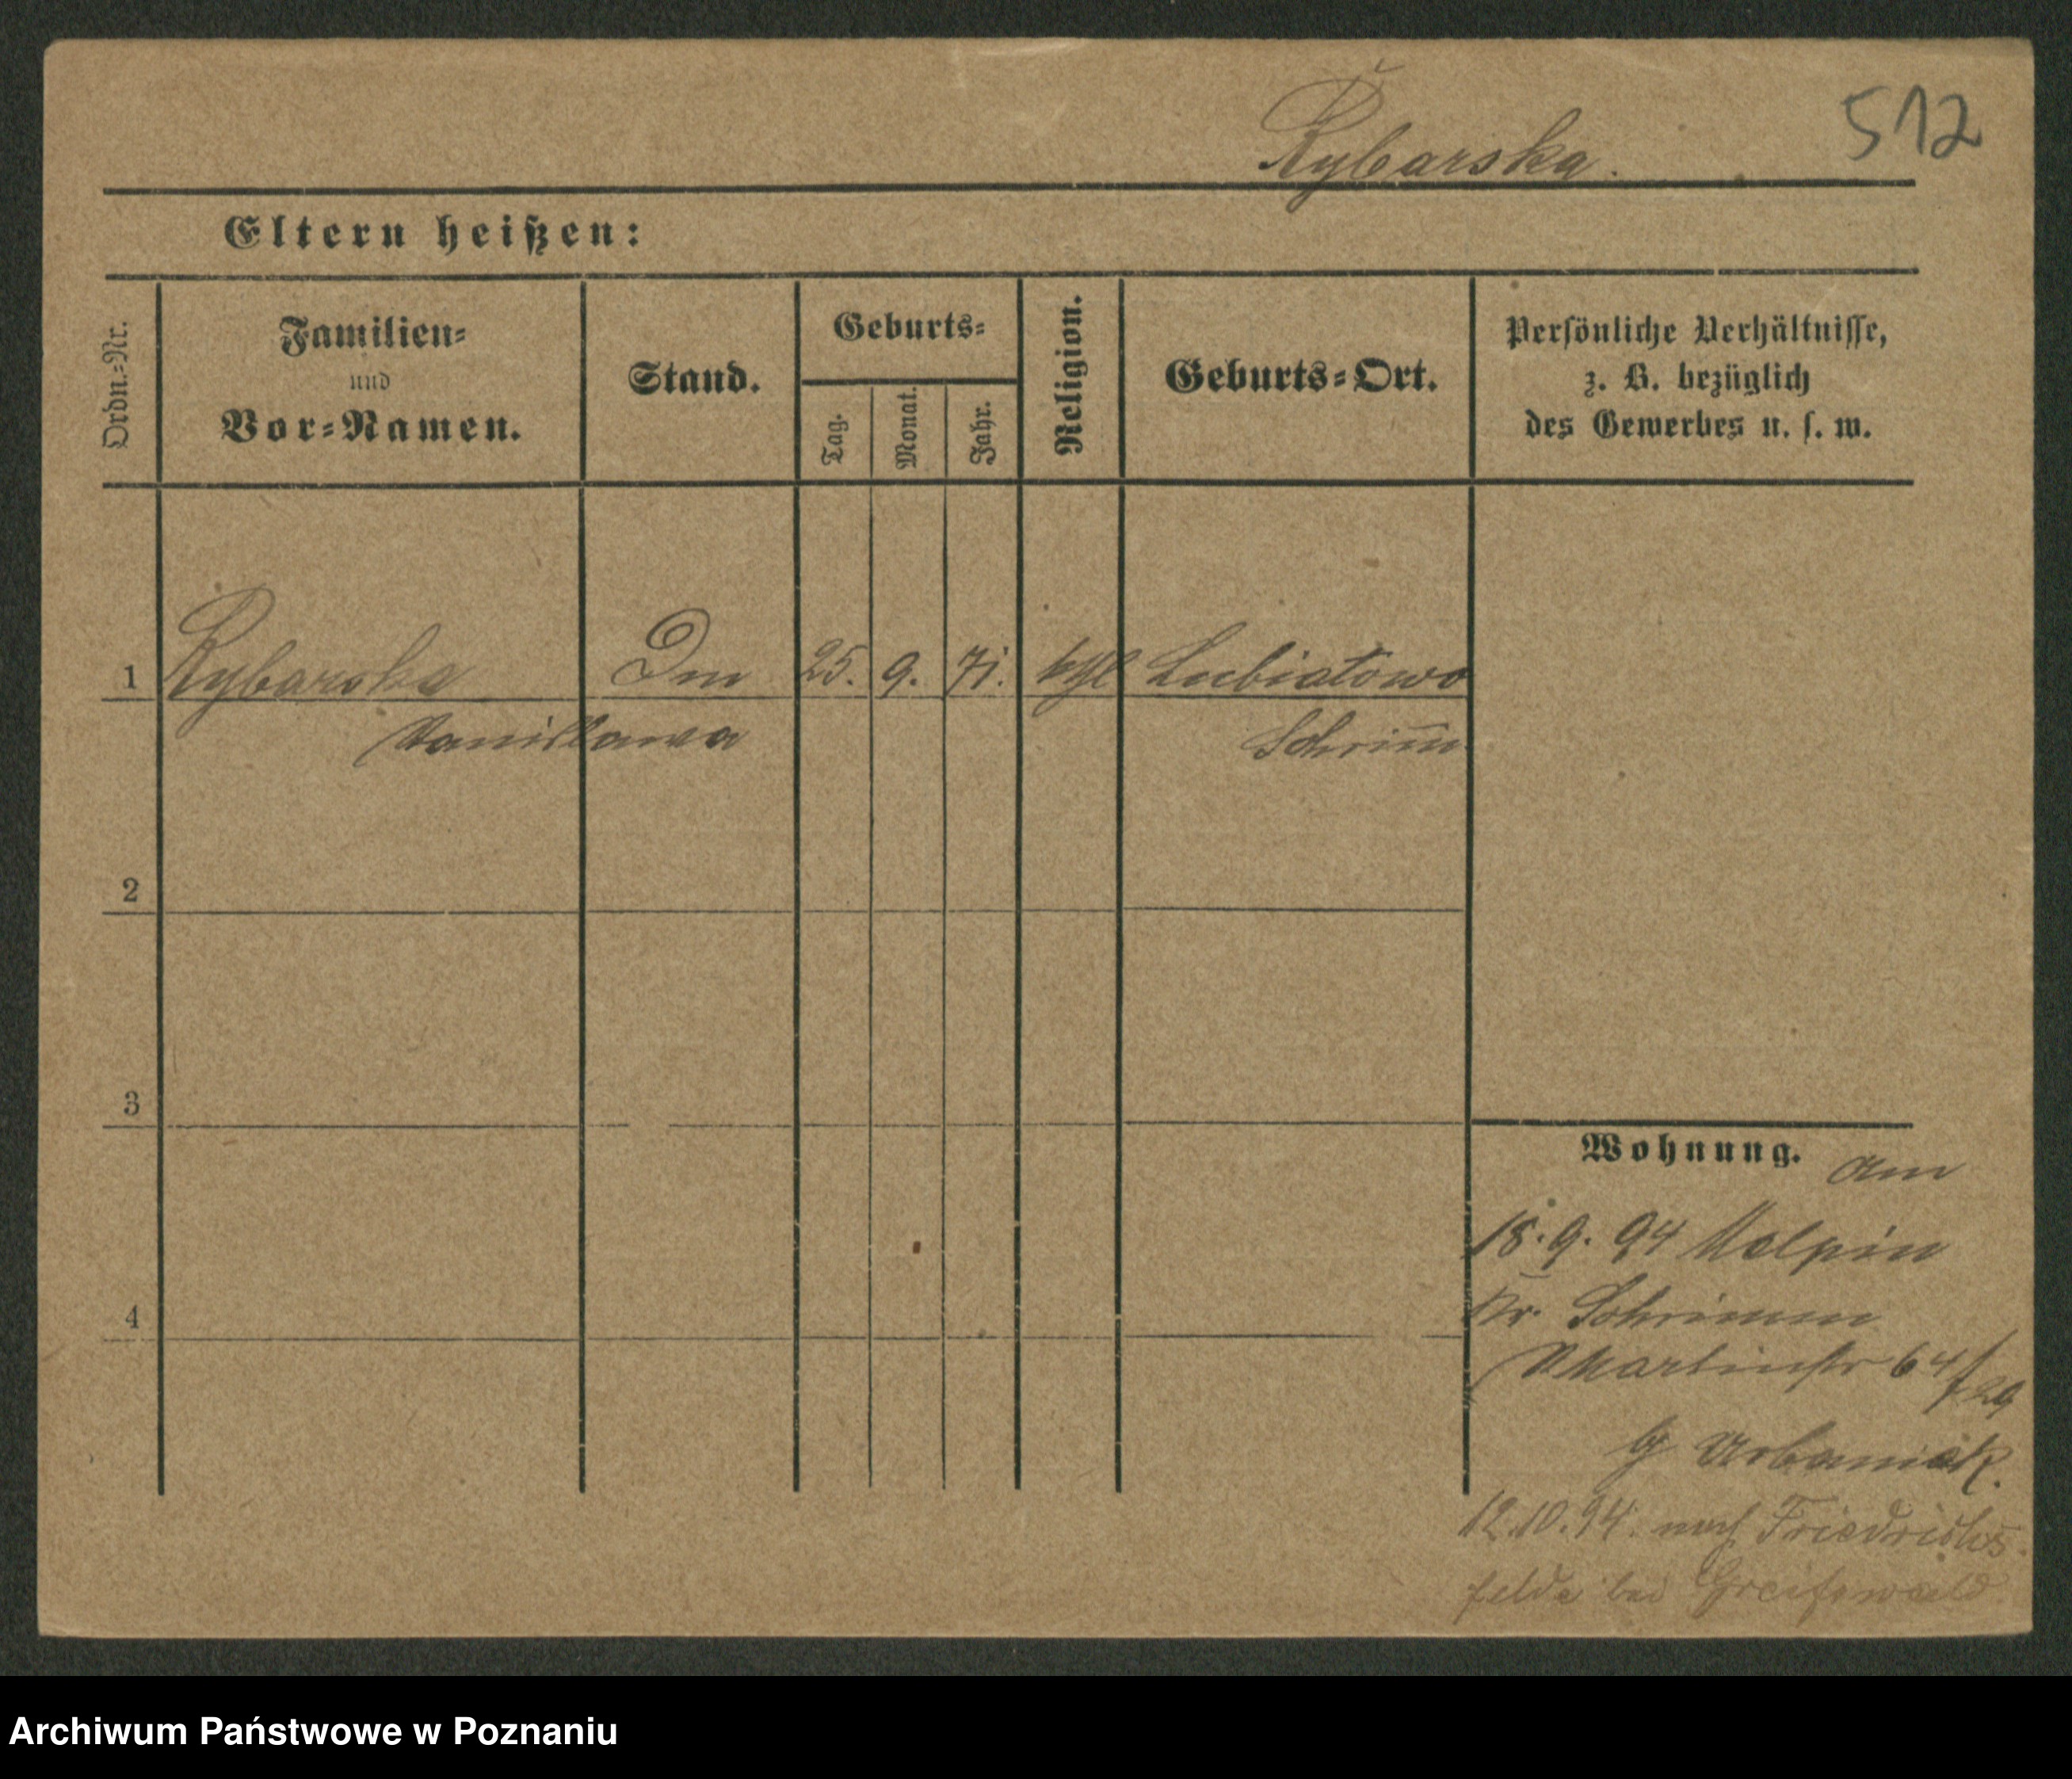 Rybarska.
512
Eltern heißen:
Ordn.-Nr.
Familien-
und
Vor-Namen.
Stand.
Geburts-
Tag.
Monat.
Jahr.
Religion.
Geburts-Ort.
Persönliche Verhältnisse,
z. B. bezüglich
des Gewerbes u. s. w.
1 Rybarska 25. 9. 71. kthl Lubiatowo
Stanislawa Schrim̅
2
3
4
Wohnung. am
18. 9. 94 Molpin
Kr. Schrimm
Martinstr 64/29
b/ Urbaniak.
12.10.94. nach Friedrichs-
felde bei Greifswald
Archiwum Państwowe w Poznaniu